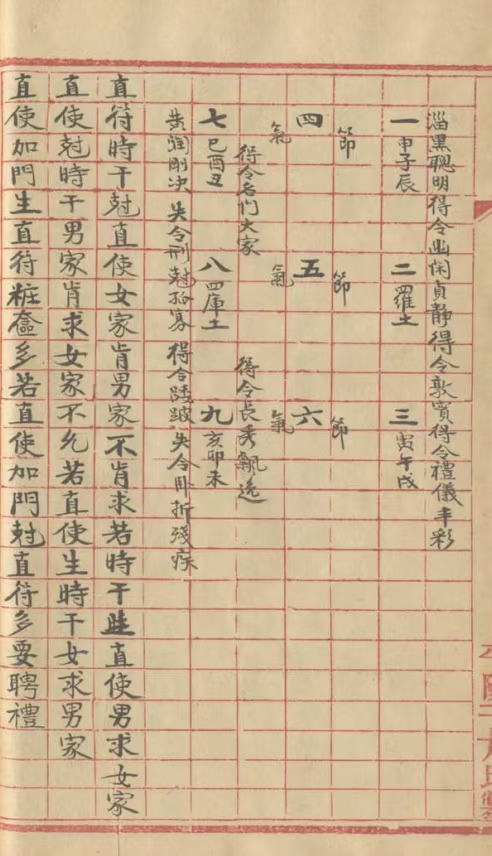 淄黑聰明得令幽閑貞靜得令敦實得令禮儀丰彩
一申子辰 二羅土 三寅午戌
節 節 節
四 五 六
氣 氣 氣
得令名門大家 得令長秀飄逸
七巳酉丑 八四庫土 九亥卯未
黄潤剛决失令刑尅孤寡得令跛失令卧折殘疾
直符時干尅直使女家肯男家不肯求若時干生直使男求女家
直使尅時干男家肯求女家不允若直使生時干女求男家
直使加門生直符粧奩多若直使加門尅直符多要聘禮